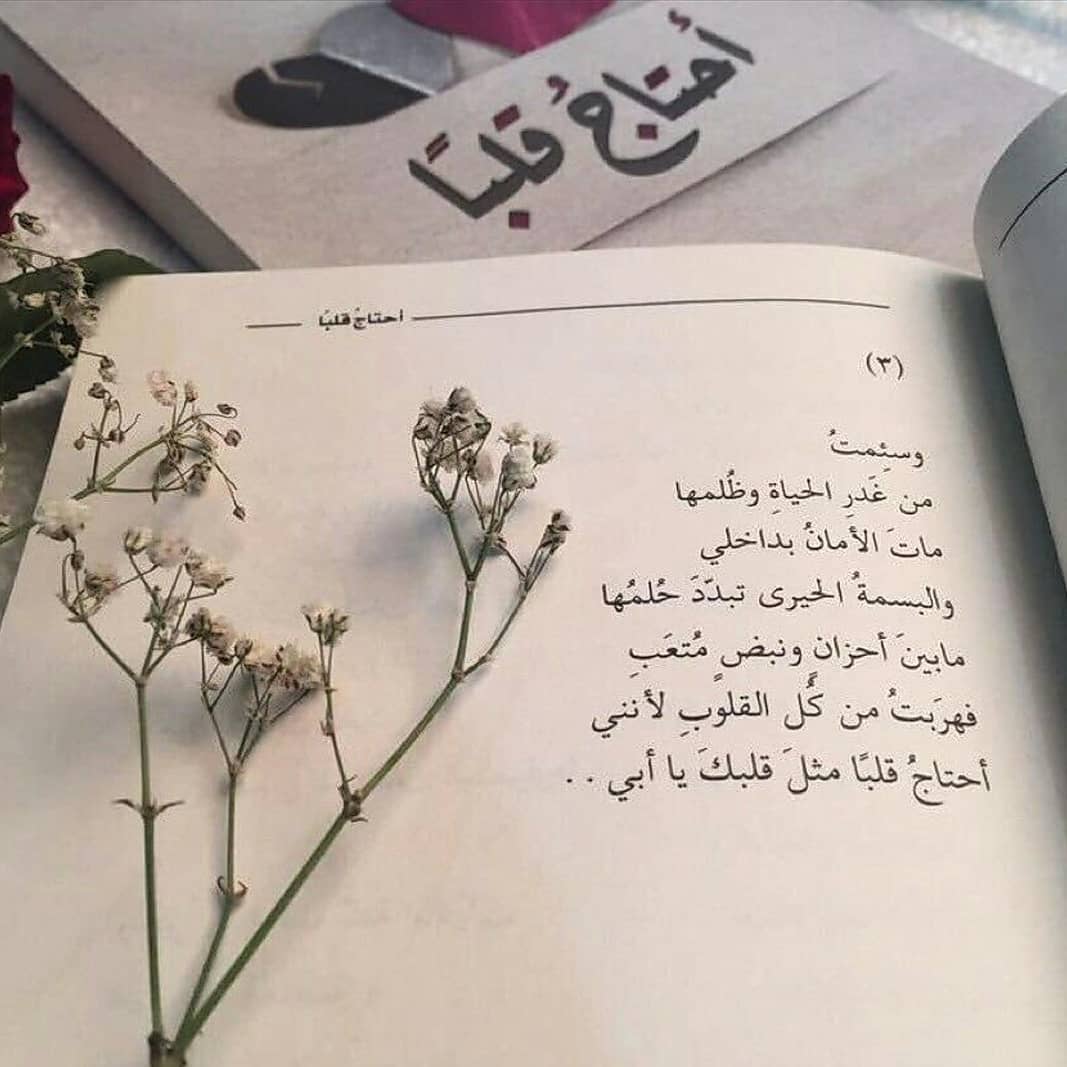 أحتاجُ قلبًا
أحتاجُ قلبًا
(٣)
وسئِمتُ
من غَدرِ الحياةِ وظُلمها
ماتَ الأمانُ بداخلي
والبسمةُ الحيرى تبدّدَ حُلمُها
مابينَ أحزانٍ ونبضٍ مُتعَبِ
فهرَبتُ من كُل القلوبِ لأنني
أحتاجُ قلبًا مثلَ قلبكَ يا أبي ..